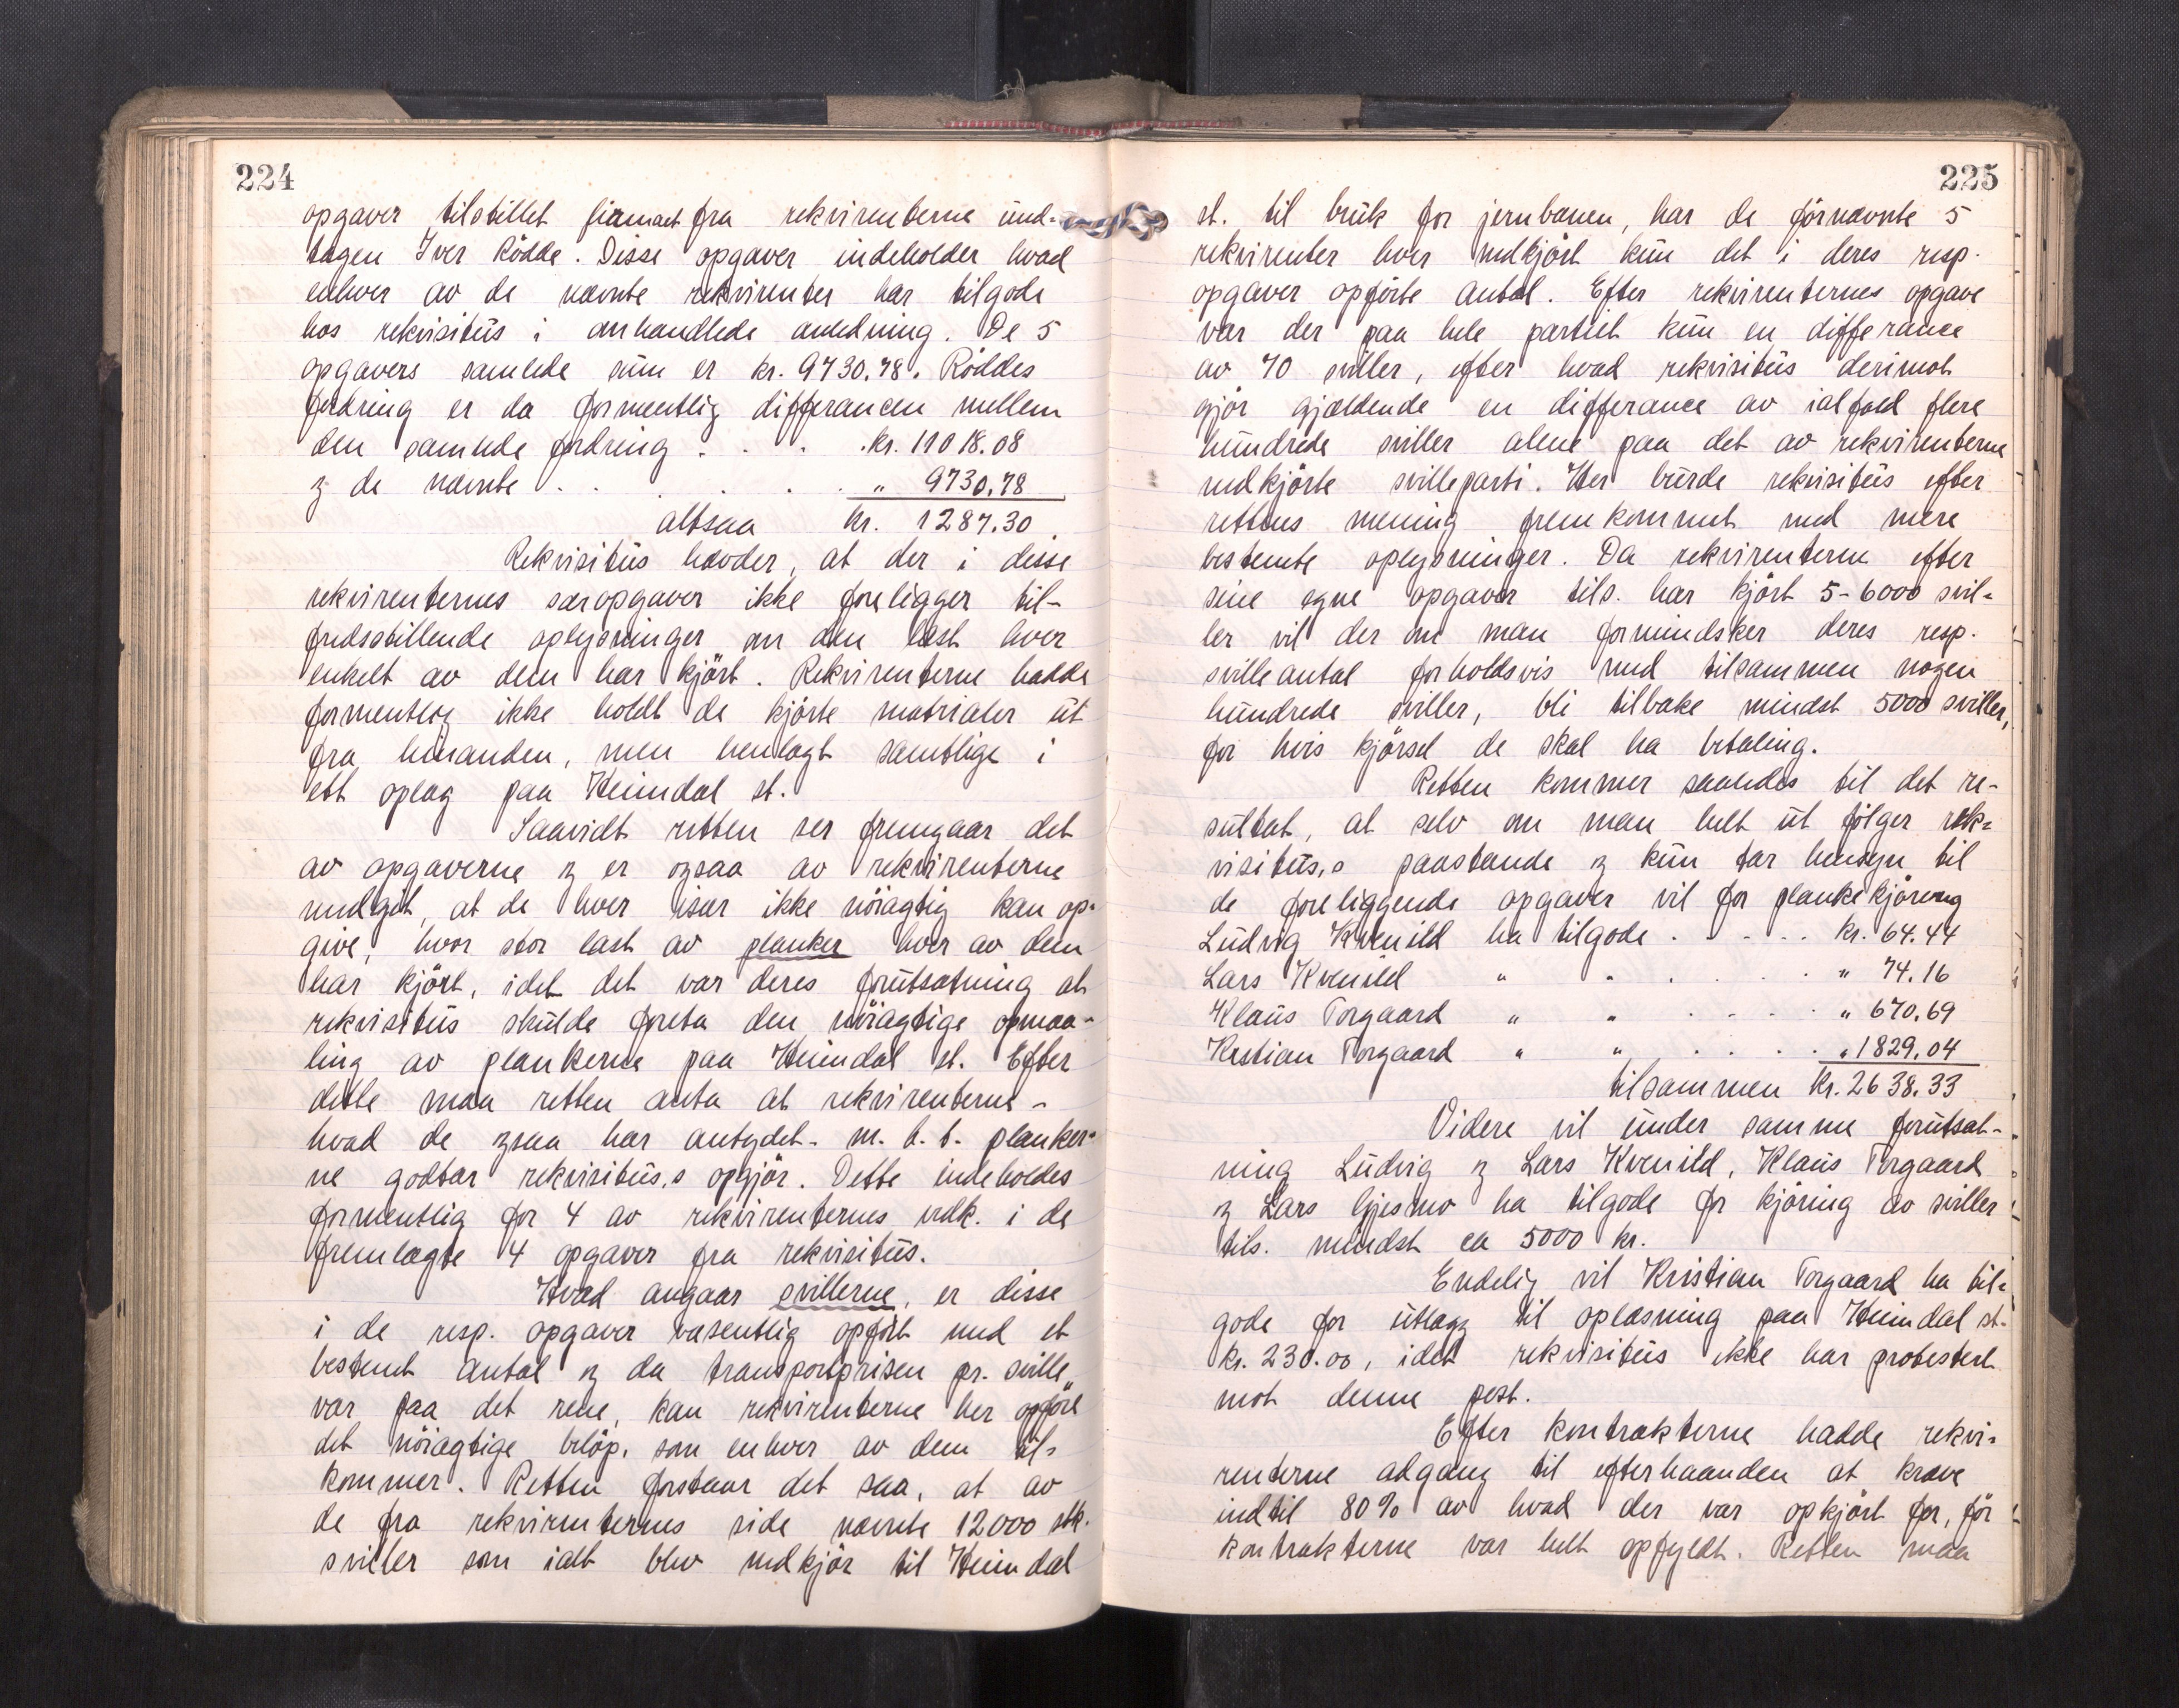 224
opgaver tilstillet firmaet fra rekvirenterne und-
tagen Iver Rödde. Disse opgaver indeholder hvad
enhver av de nævnte rekvirenter har tilgode
hos rekvisitus i omhandlede anledning. De 5
opgavers samlede sum er kr. 9730.78. Röddes
fordring er da formentlig differancen mellem
den samlede fordring . . . . kr. 11018.08
og de nævnte . . . . . . " 9730.78
altsaa kr. 1287.30
Rekvisitus hævder, at der i disse
rekvirenternes særopgaver ikke foreligger til-
fredsstillende oplysninger om den last hver
enkelt av dem har kjört. Rekvirenterne hadde
formentlig ikke holdt de kjörte materialer ut
fra hinanden, men henlagt samtlige i
ett oplag paa Heimdal st.
Saavidt retten ser fremgaar det
av opgaverne og er ogsaa av rekvirenterne
medgit, at de hver især ikke nöiagtig kan op-
give, hvor stor last av planker hver av dem
har kjört, idet det var deres forutsætning at
rekvisitus skulde foreta den nöiagtige opmaa-
ling av plankerne paa Heimdal st. Efter
dette maa retten anta at rekvirenterne -
hvad de ogsaa har antydet - m. h. t. planker-
ne godtar rekvisitus,s opgjör. Dette indeholdes
formentlig for 4 av rekvirenternes vedk. i de
fremlagte 4 opgaver fra rekvisitus.
Hvad angaar svillerne, er disse
i de resp. opgaver væsentlig opfört med et
bestemt antal og da transportprisen pr. sville
var paa det rene, kan rekvirenterne her opföre
det nöiagtige belöp, som enhver av dem til-
kommer. Retten forstaar det saa, at av
de fra rekvirenternes side nævnte 12000 stk.
sviller som ialt blev nedkjör til Heimdal
225
st. til bruk for jernbanen, har de förnævnte 5
rekvirenter hver nedkjört kun det i deres resp.
opgaver opförte antal. Efter rekvirenternes opgave
var der paa hele partiet kun en differance
av 70 sviller, efter hvad rekvisitus derimot
gjör gjældende en differance av ialfald flere
hundrede sviller alene paa det av rekvirenterne
nedkjörte svilleparti. Her burde rekvisitus efter
rettens mening fremkommet med mere
bestemte oplysninger. Da rekvirenterne efter
sine egne opgaver tils. har kjört 5-6000 svil-
ler vil der om man formindsker deres resp.
svilleantal forholdsvis med tilsammen nogen
hundrede sviller, bli tilbake mindst 5000 sviller,
for hvis kjörsel de skal ha betaling.
Retten kommer saaledes til det re-
sultat, at selv om man helt ut fölger rek-
visitus,s paastande og kun tar hensyn til
de foreliggende opgaver vil for plankekjöring
Ludvig Kvenild ha tilgode . . . . . kr. 64.44
Lars Kvenild " " . . . . " 74.16
Klaus Torgaard " " . . . . . " 670.69
Kristian Torgaard " " . . . . " 1829.04
tilsammen kr. 2638.33
Videre vil under samme forutsæt-
ning Ludvig og Lars Kvenild, Klaus Torgaard
og Lars Gjesmo ha tilgode for kjöring av sviller
tils. mindst ca 5000 kr.
Endelig vil Kristian Torgaard ha til-
gode for utlægg til oplæsning paa Heimdal st.
kr. 230.00, idet rekvisitus ikke har protestert
mot denne post.
Efter kontrakterne hadde rekvi-
renterne adgang til efterhaanden at kræve
indtil 80% av hvad der var opkjört for, för
kontrakterne var helt opfyldt. Retten maa